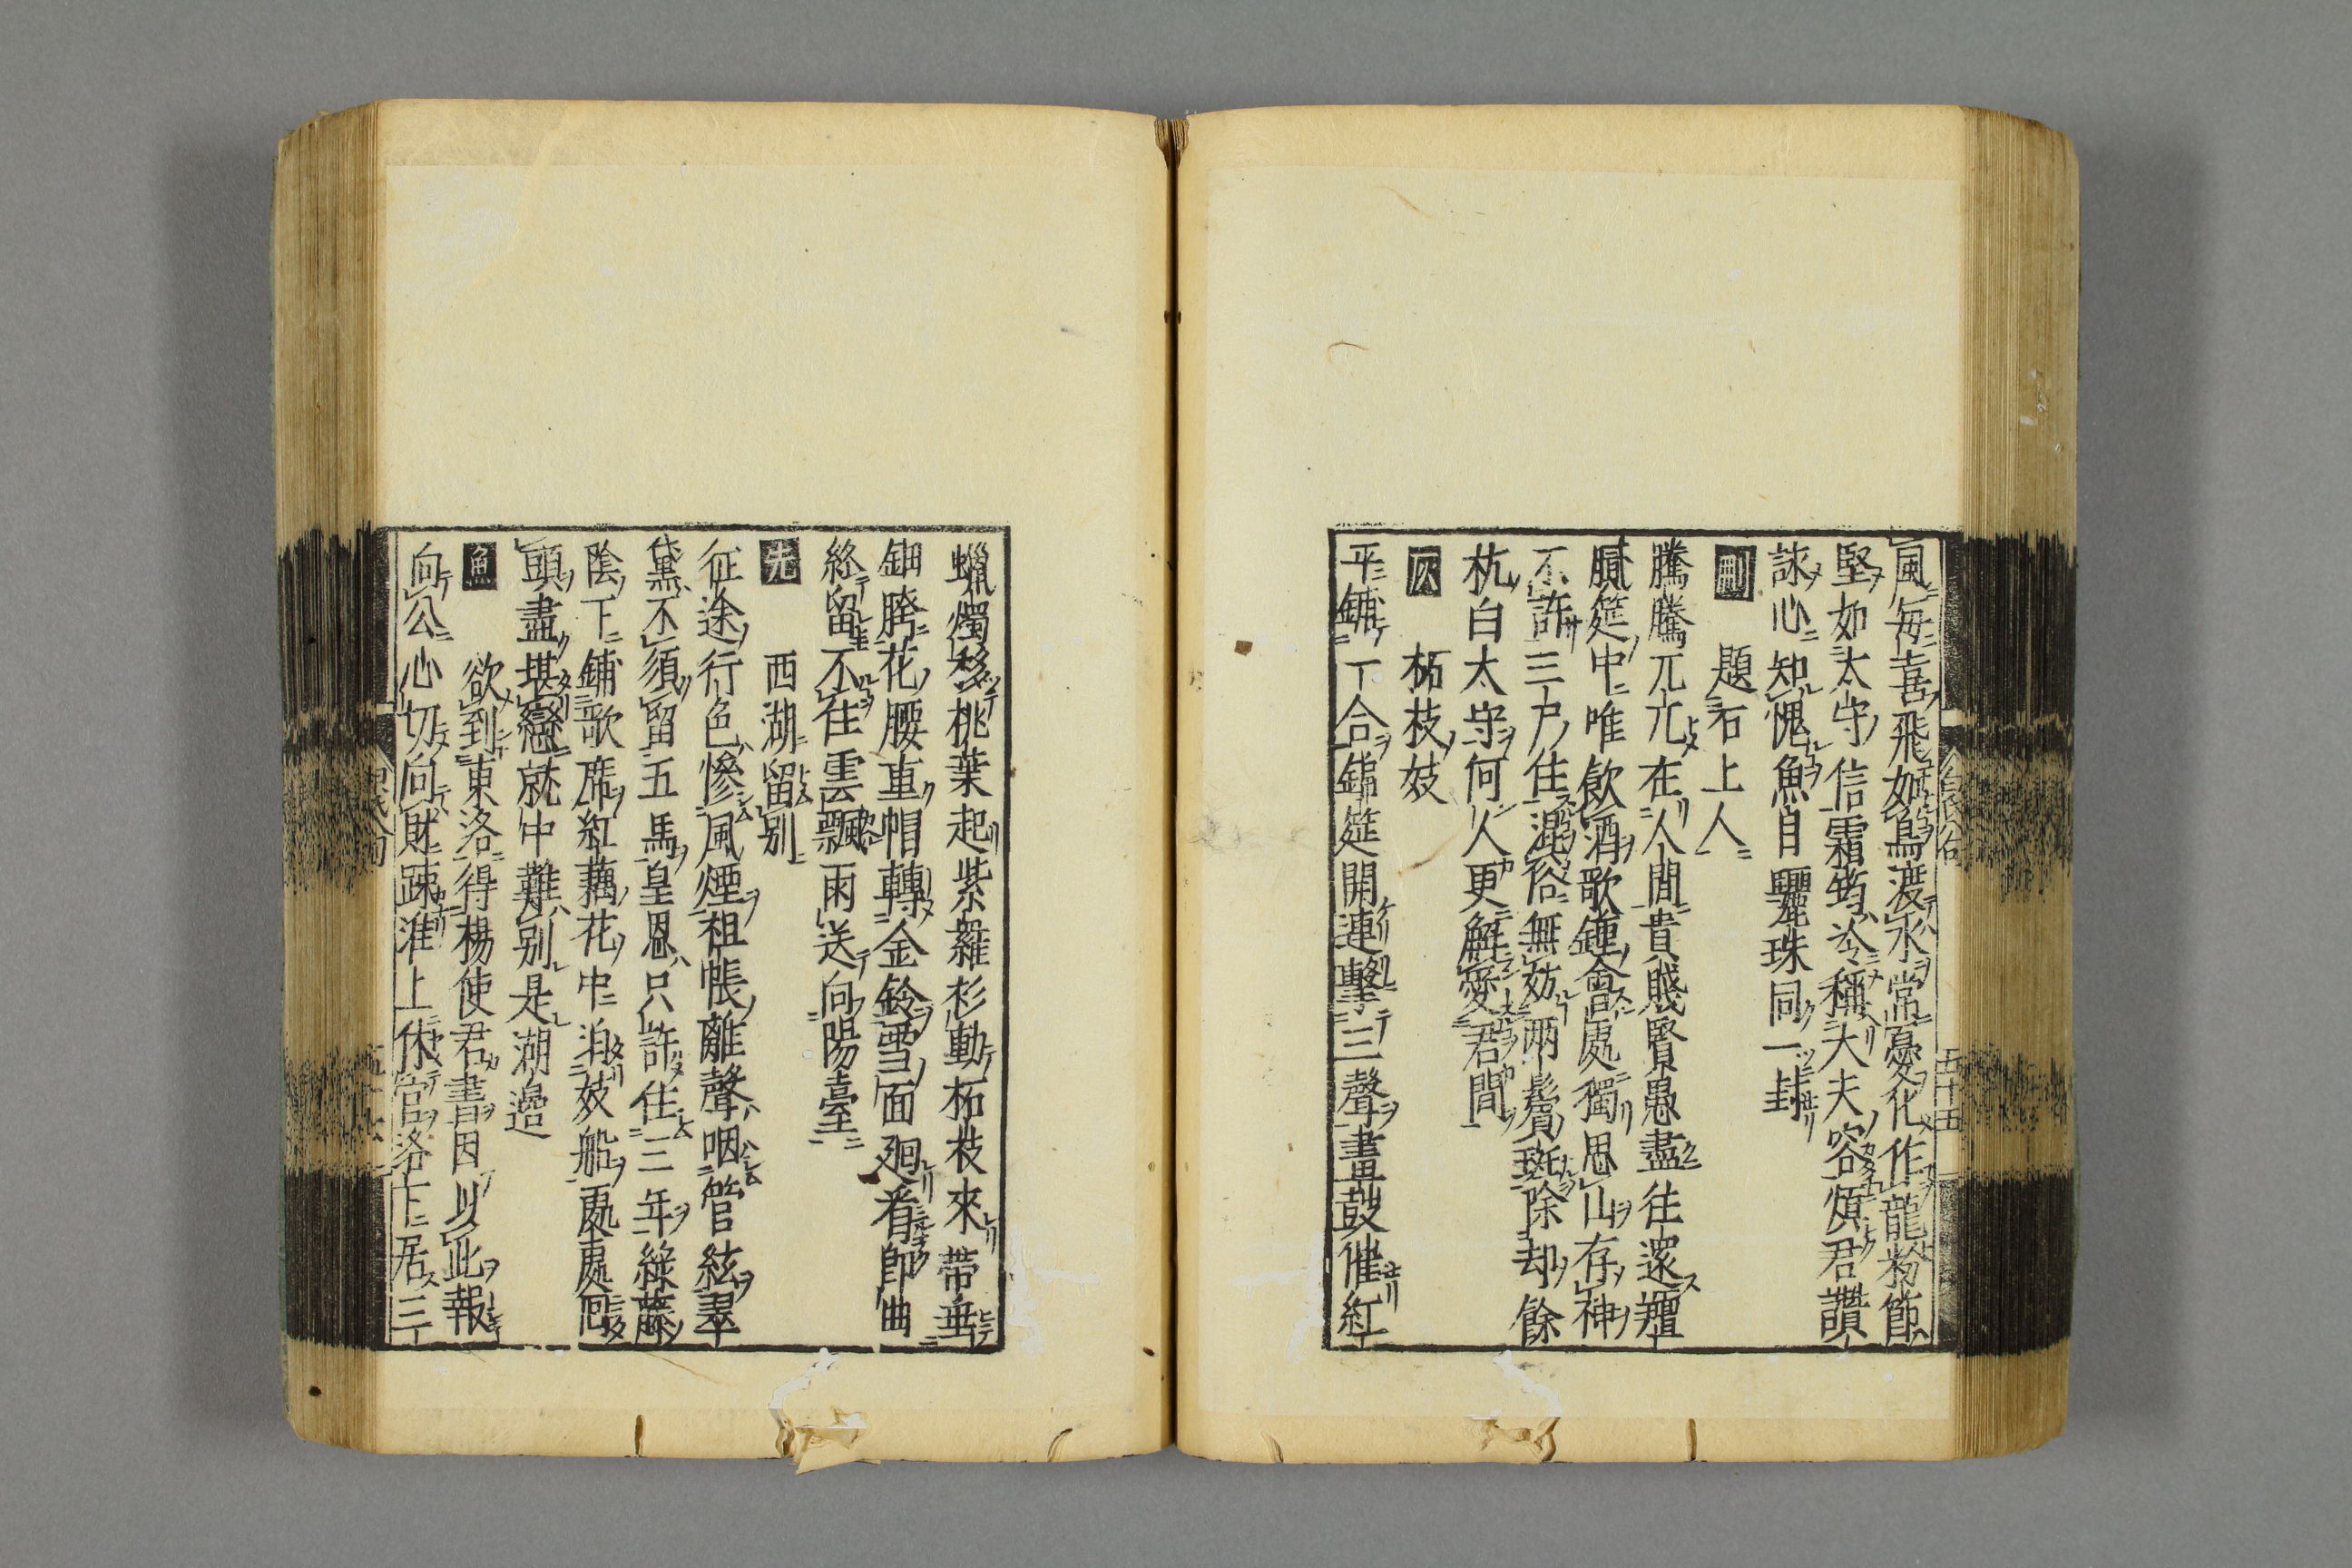 風每喜飛如鳥渡水常憂化作龍粉節
堅如太守信霜筠冷稱大夫容煩君讚
詠心知愧魚目驪珠同一封
刪 題石上人
騰騰兀兀在人間貴賤賢愚盡往還羶
膩筵中唯飲酒歌鐘會處獨思山存神
不許三尸住混俗無妨兩鬢斑除却餘
杭白太守何人更解愛君閒
灰 柘枝妓
平鋪一合錦筵開連擊三聲畫鼓催紅
蠟燭移桃葉起紫羅衫動柘枝來帶垂
鈿胯花腰重帽轉金鈴雪面廻看即曲
終留不住雲飄雨送向陽臺
先 西湖留別
征途行色慘風煙祖帳離聲咽管絃翠
黛不須留五馬皇恩只許住三年綠藤
陰下鋪歌席紅藕花中泊妓船處處廻
頭盡堪戀就中難別是湖邊
魚 欲到東洛得楊使君書因以此報
向公心切向財疎淮上休官洛下居三
五十五